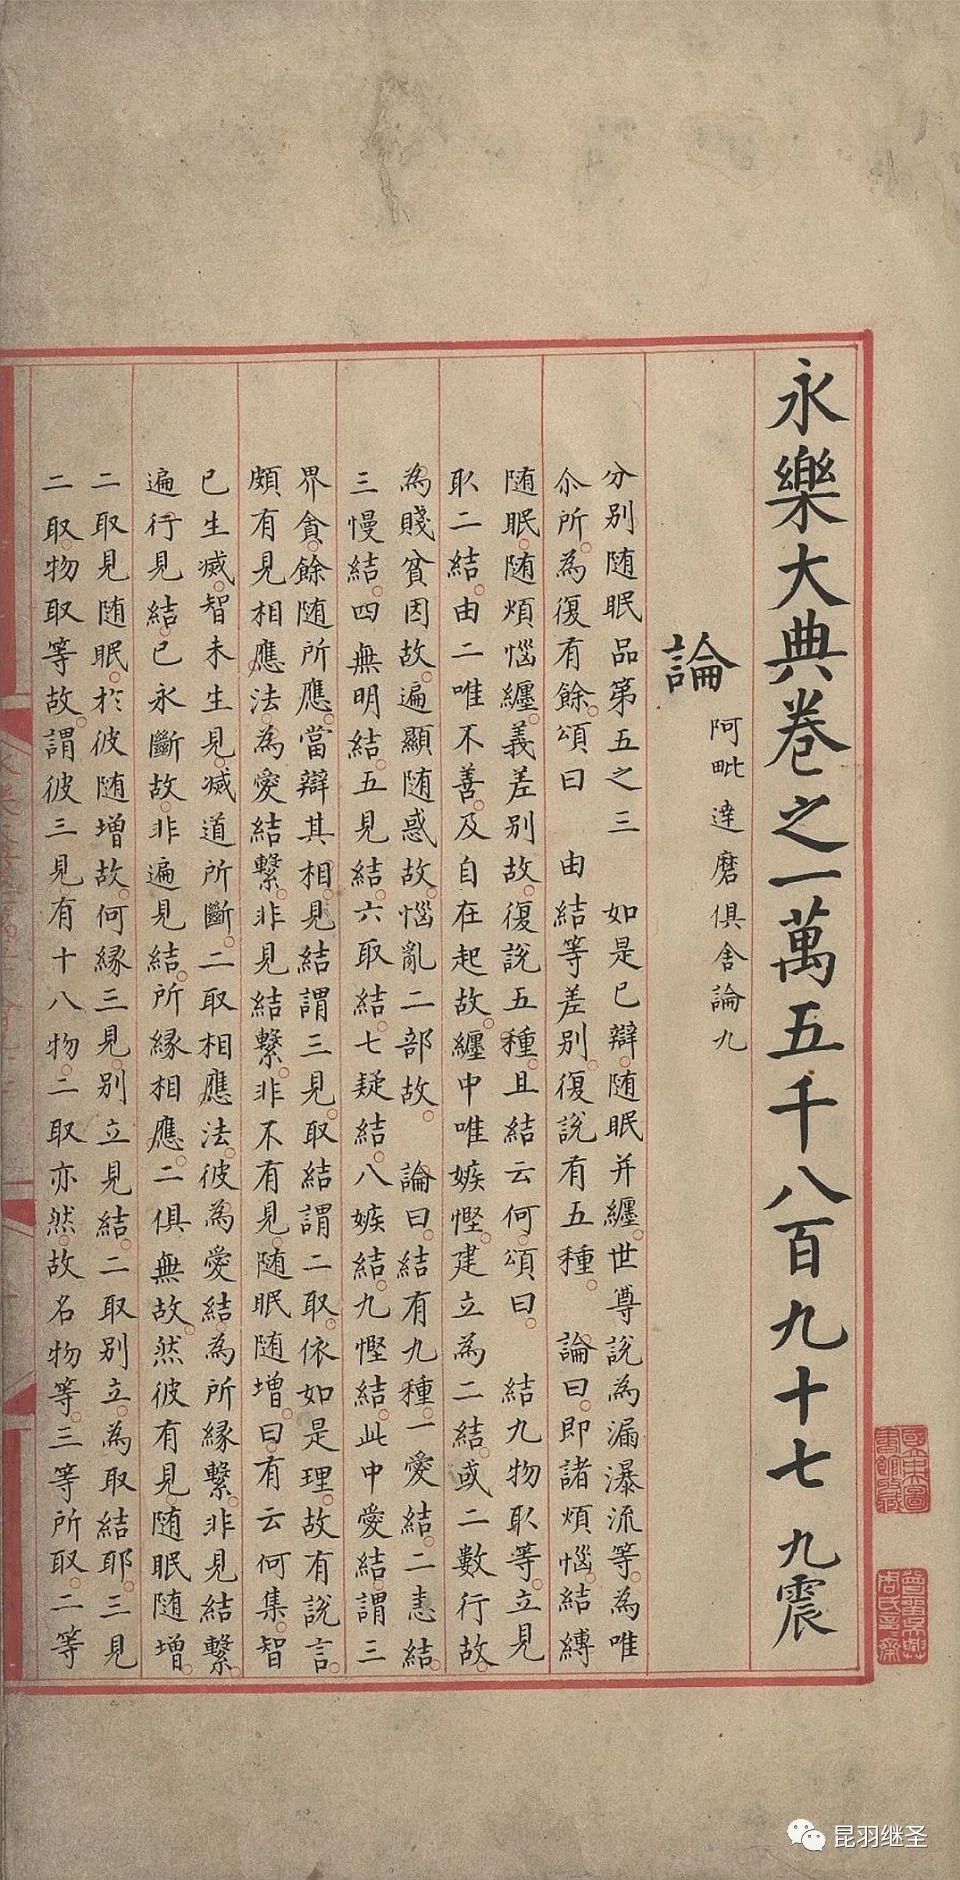 永樂大典卷之一萬五千八百九十七 九震
論 阿毗達磨俱舍論九
分別随眠品第五之三 如是已辯。随眠并纏。世尊說為漏瀑流等。為唯
尒所。為復有餘。頌曰 由結等差別。復說有五種。 論曰。即諸煩惱。結縛
随眠。随煩惱纏。義差别故。復說五種。且結云何。頌曰。 結九物取等。立見
取二結。由二唯不善。及自在起故。纏中唯嫉慳。建立為二結。或二數行故。
為賤貧因故。遍顯随惑故。惱亂二部故。 論曰。結有九種。一愛結。二恚結。
三慢結。四無明結。五見結。六取結。七疑結。八嫉結。九慳結。此中愛結。謂三
界貪。餘随所應。當辯其相。見結謂三見。取結謂二取。依如是理。故有說言。
頗有見相應法。為愛結繫。非見結繫。非不有見。随眠随增。曰。有云何集。智
已生滅。智未生見。滅道所斷。二取相應法。彼為愛結。為所縁繫。非見結繫。
遍行見結。已永斷故。非遍見結。所縁相應。二俱無故。然彼有見随眠随增。
二取見随眠。於彼随增故。何縁三見。别立見結。二取别立。為取結耶。三見
二取。物取等故。謂彼三見。有十八物。二取亦然。故名物等。三等所取。二等
昆羽继圣